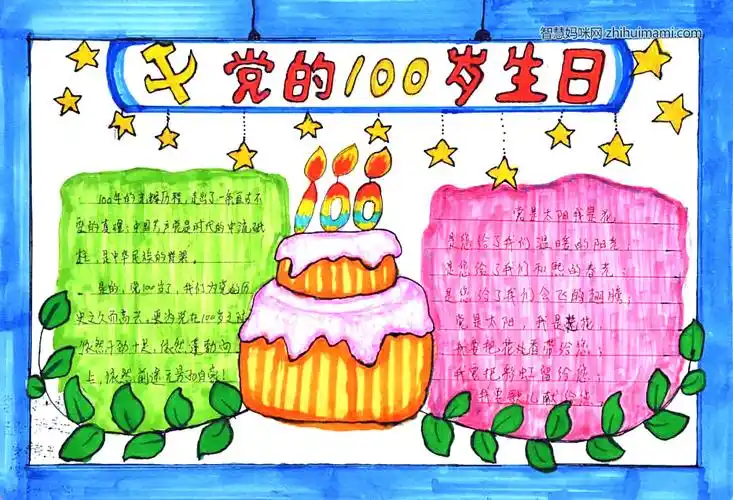 智慧妈咪网 zhihuimami.com
党的100岁生日
100
100年的光辉历程,走出了一条亘古不
变的真理:中国共产党是时代的中流砥
柱,是中华民族的脊梁。
是的,党100岁了,我们为党的历
史之久而高兴,更为党在100岁之
依然干劲十足,依然蓬勃向
上,依然前途无量和自豪!
党是太阳我是花
是您给了我们温暖的阳光;
是您给了我们和熙的春光;
是您给了我们会飞的翅膀;
党是太阳,我是花,
我要把花的香带给您;
我要把粉红留给您;
我要歌儿献给您